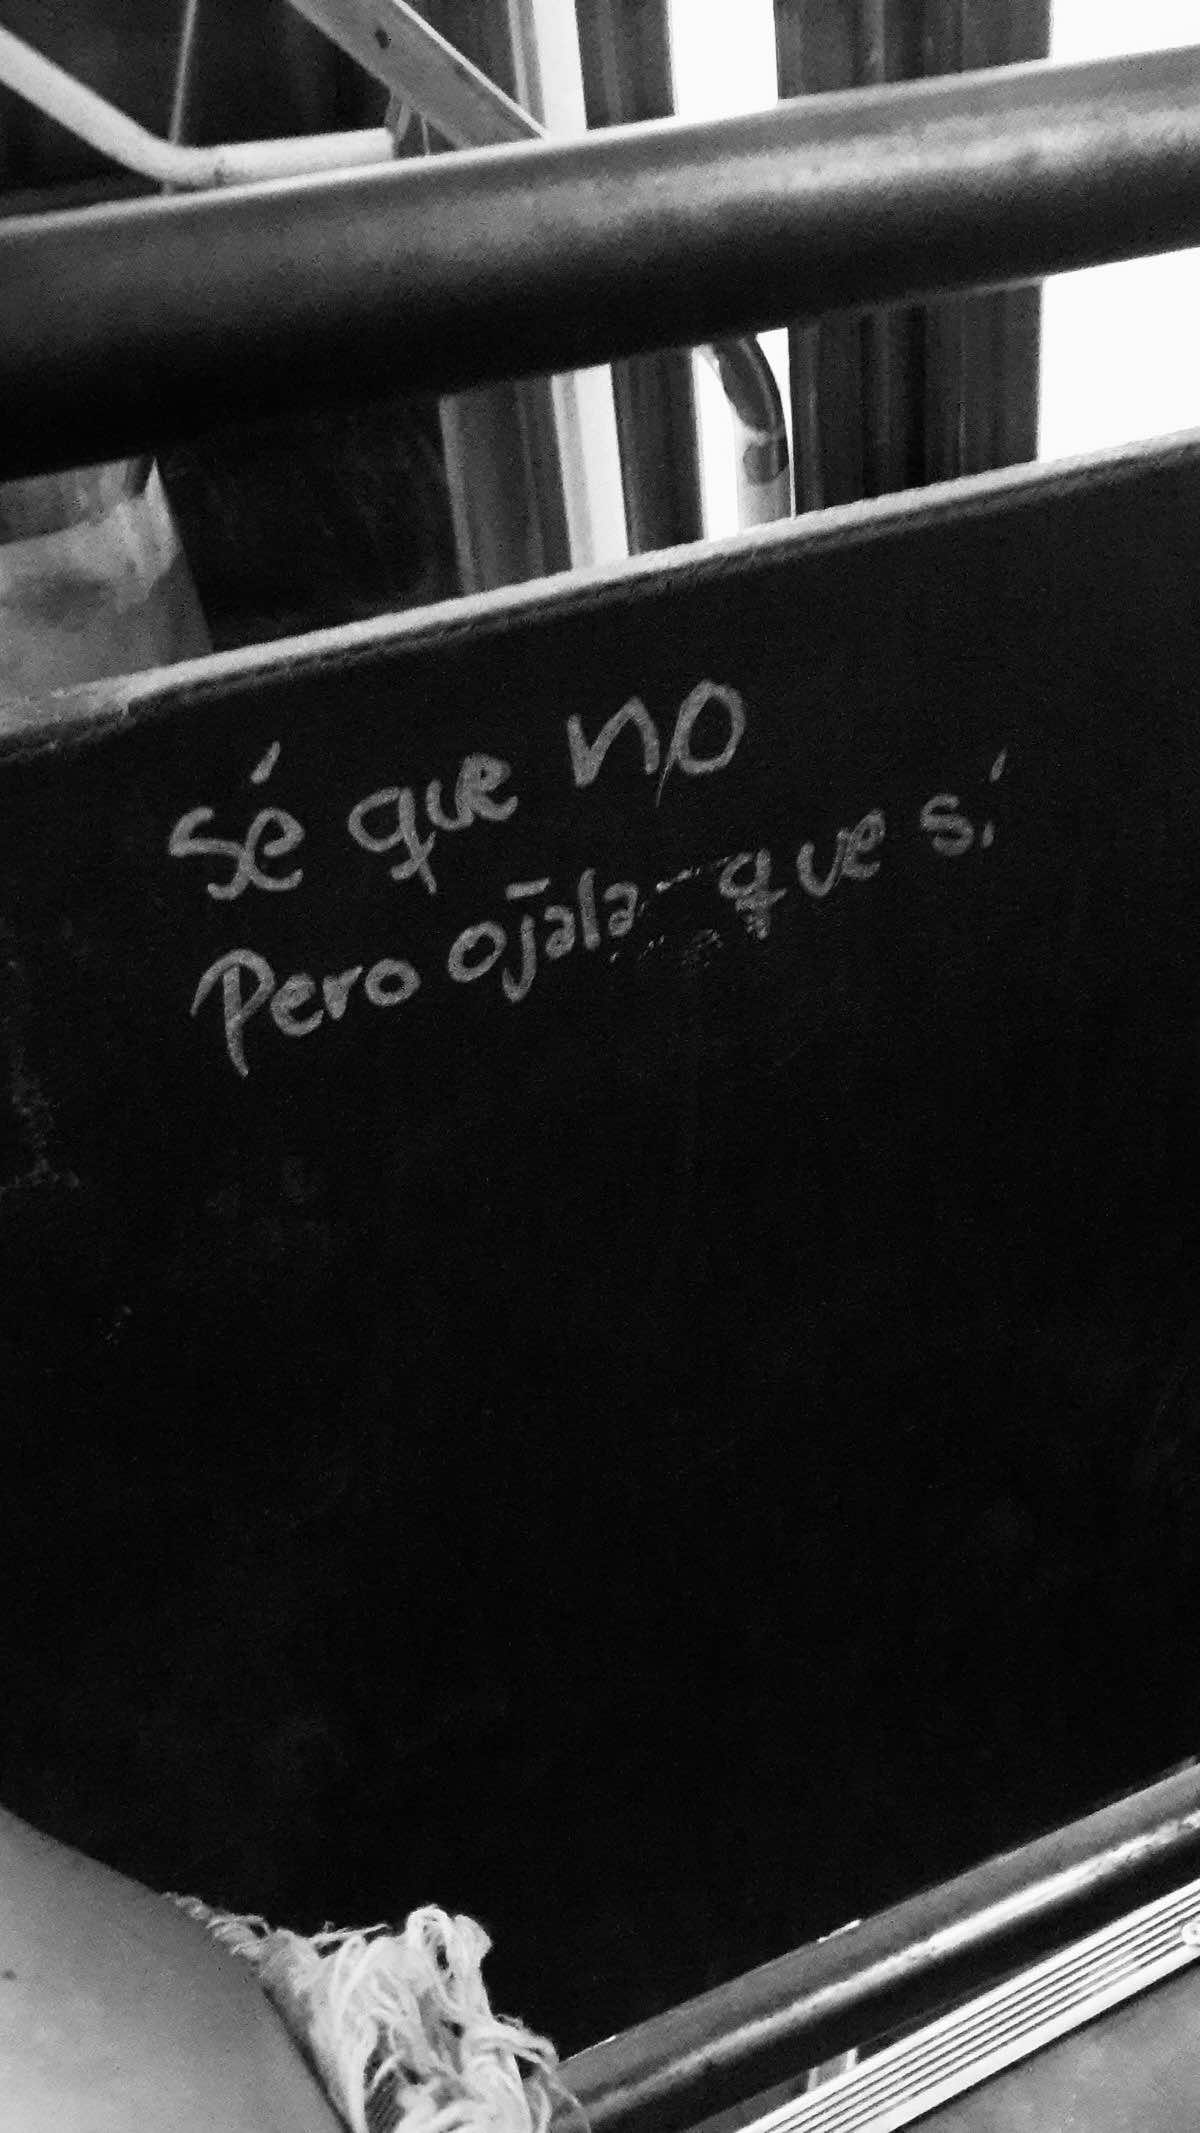 sé que no
Pero ojala que sí